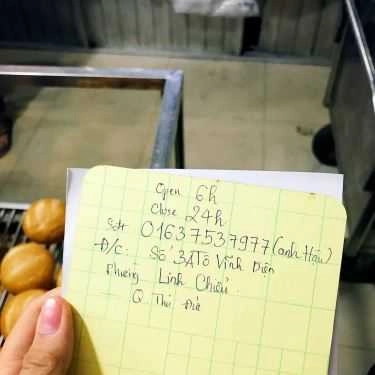 Open 6h
Close 24h
Sđt 01637537977 (anh Hậu)
Đ/C: Số 3A Tô Vĩnh Diện
phường Linh Chiểu.
Q. Thủ Đức